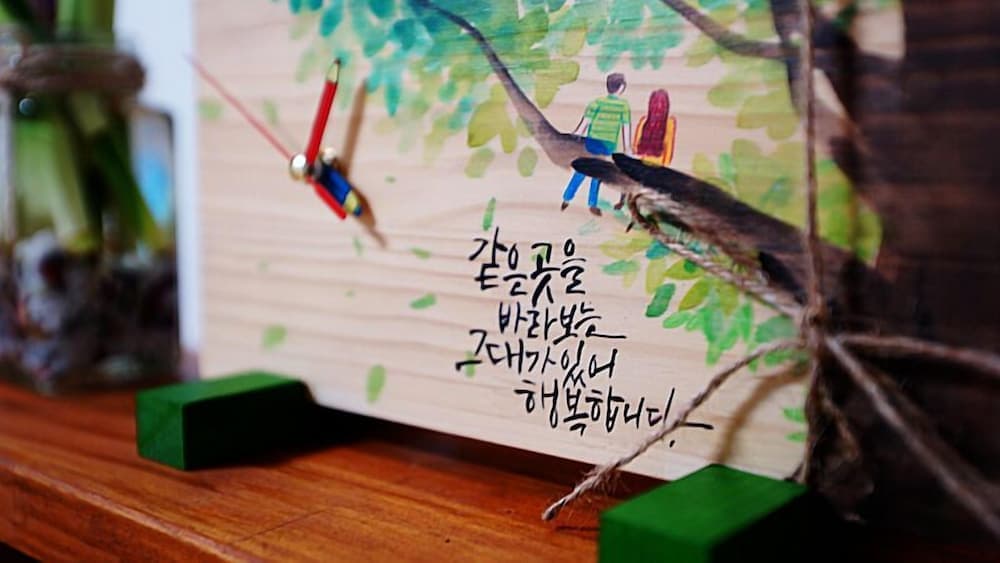 같은곳을
바라보는
그대가있어
행복합니다.